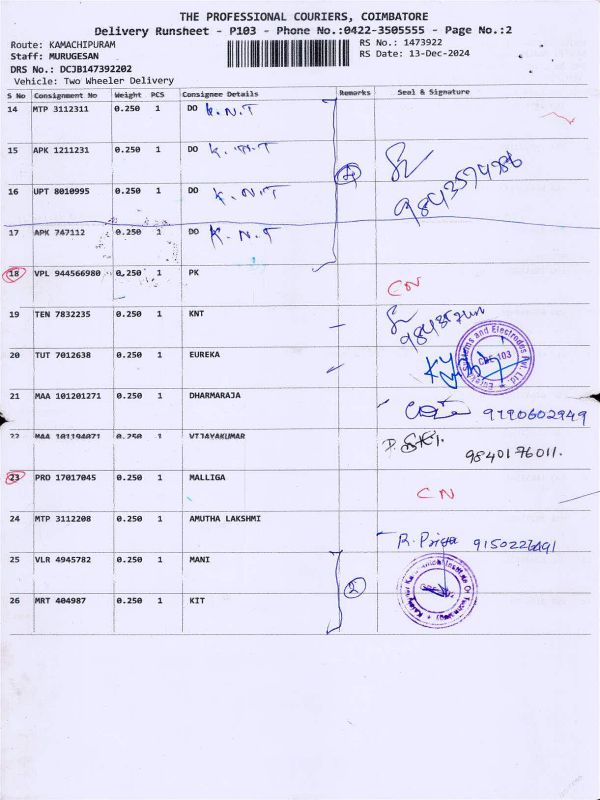 THE PROFESSIONAL COURIERS, COIMBATORE
Delivery Runsheet - P103 - Phone No.:0422-3505555 - Page No.:2
Route: KAMACHIPURAM RS No.: 1473922
Staff: MURUGESAN RS Date: 13-Dec-2024
DRS No.: DCJB147392202
Vehicle: Two Wheeler Delivery
S No Consignment No Weight PCS Consignee Details Remarks Seal & Signature
14 MTP 3112311 0.250 1 DO K.N.T
15 APK 1211231 0.250 1 DO K.N.T
16 UPT 8010995 0.250 1 DO K.N.T 4 9843574986
17 APK 747112 0.250 1 DO K.N.T
18 VPL 944566980 0.250 1 PK CN
19 TEN 7832235 0.250 1 KNT
20 TUT 7012638 0.250 1 EUREKA CBE-103
21 MAA 101201271 0.250 1 DHARMARAJA 9790602949
22 MAA 101194071 0.250 1 VIJAYAKUMAR 9840176011.
23 PRO 17017045 0.250 1 MALLIGA CN
24 MTP 3112208 0.250 1 AMUTHA LAKSHMI R. Priya 9150226491
25 VLR 4945782 0.250 1 MANI 2
26 MRT 404987 0.250 1 KIT